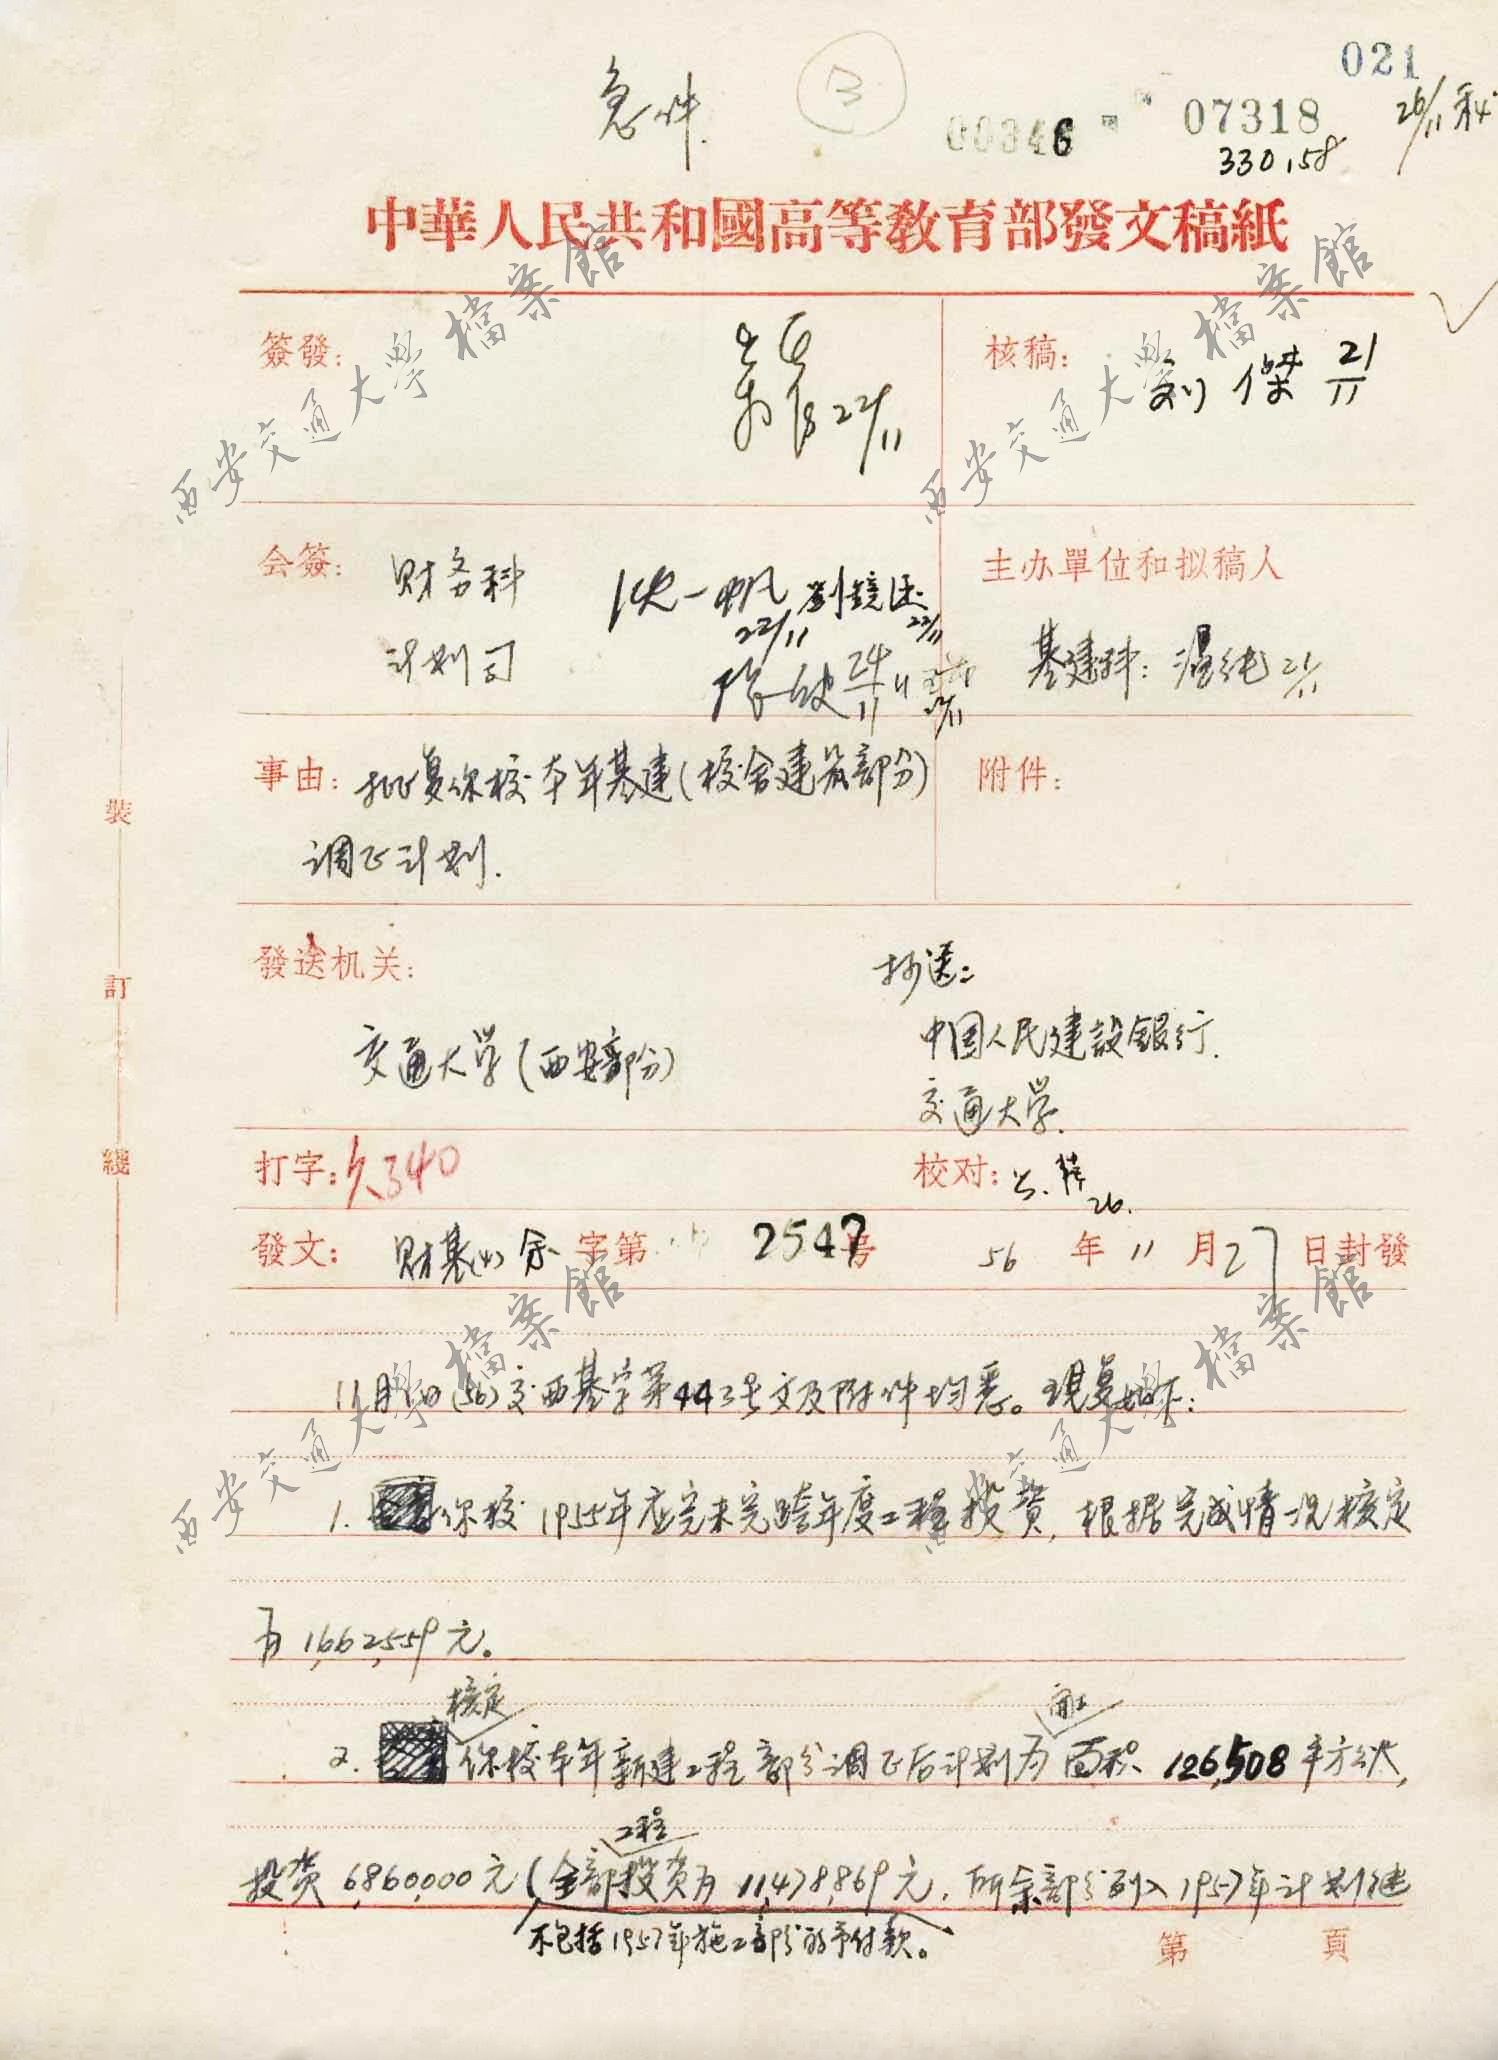 021
急件.
B
00346
07318
26/11
330,158
中華人民共和國高等教育部發文稿紙
簽發：
22/11
核稿：
刘傑 21/11
会簽：
财务科
沈一帆 22/11
劉鏡 22/11
计划司
24/11
主办單位和拟稿人
基建科：温纯 21/11
事由：批复你校本年基建（校舍建筑部分）
调正计划.
附件：
發送机关：
抄送：
交通大学（西安部分）
中国人民建設銀行.
交通大学.
打字：340
校对：
26.
發文：财基(4) 余 字第 2547 号 56 年 11 月 27 日封發
11月 日(56)交西基字第442号文及附件均悉。現复如下：
1. 你校1955年应完未完跨年度工程投資，根据完成情况核定
为 1,662,559元。
核定
面工
2. 你校本年新建工程部分调正后计划为面积 126,508平方公尺，
工程
投资 6,860,000元（全部投资为 11,478,869元，所余部分列入1957年计划继
不包括1957年施工部分的予付款。
第 頁
裝
訂
綫
西安交通大學檔案館
西安交通大學檔案館
西安交通大學檔案館
西安交通大學檔案館